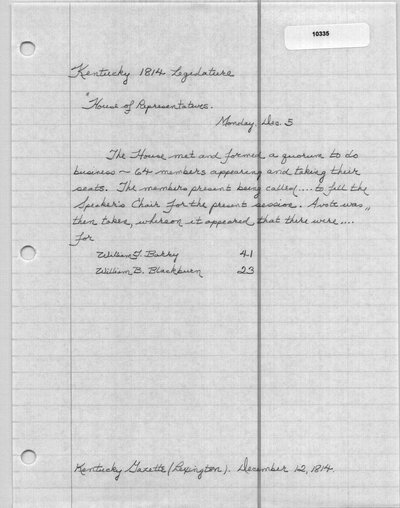 10335
Kentucky 1814 Legislature
"House of Representatives.
Monday, Dec. 5
The House met and formed a quorum to do
business ~ 64 members appearing and taking their
seats. The members present being called .... to fill the
Speaker's Chair for the present session. A vote was
then taken, whereon it appeared that there were ....
for
William T. Barry 41
William B. Blackburn 23
Kentucky Gazette (Lexington). December 12, 1814.